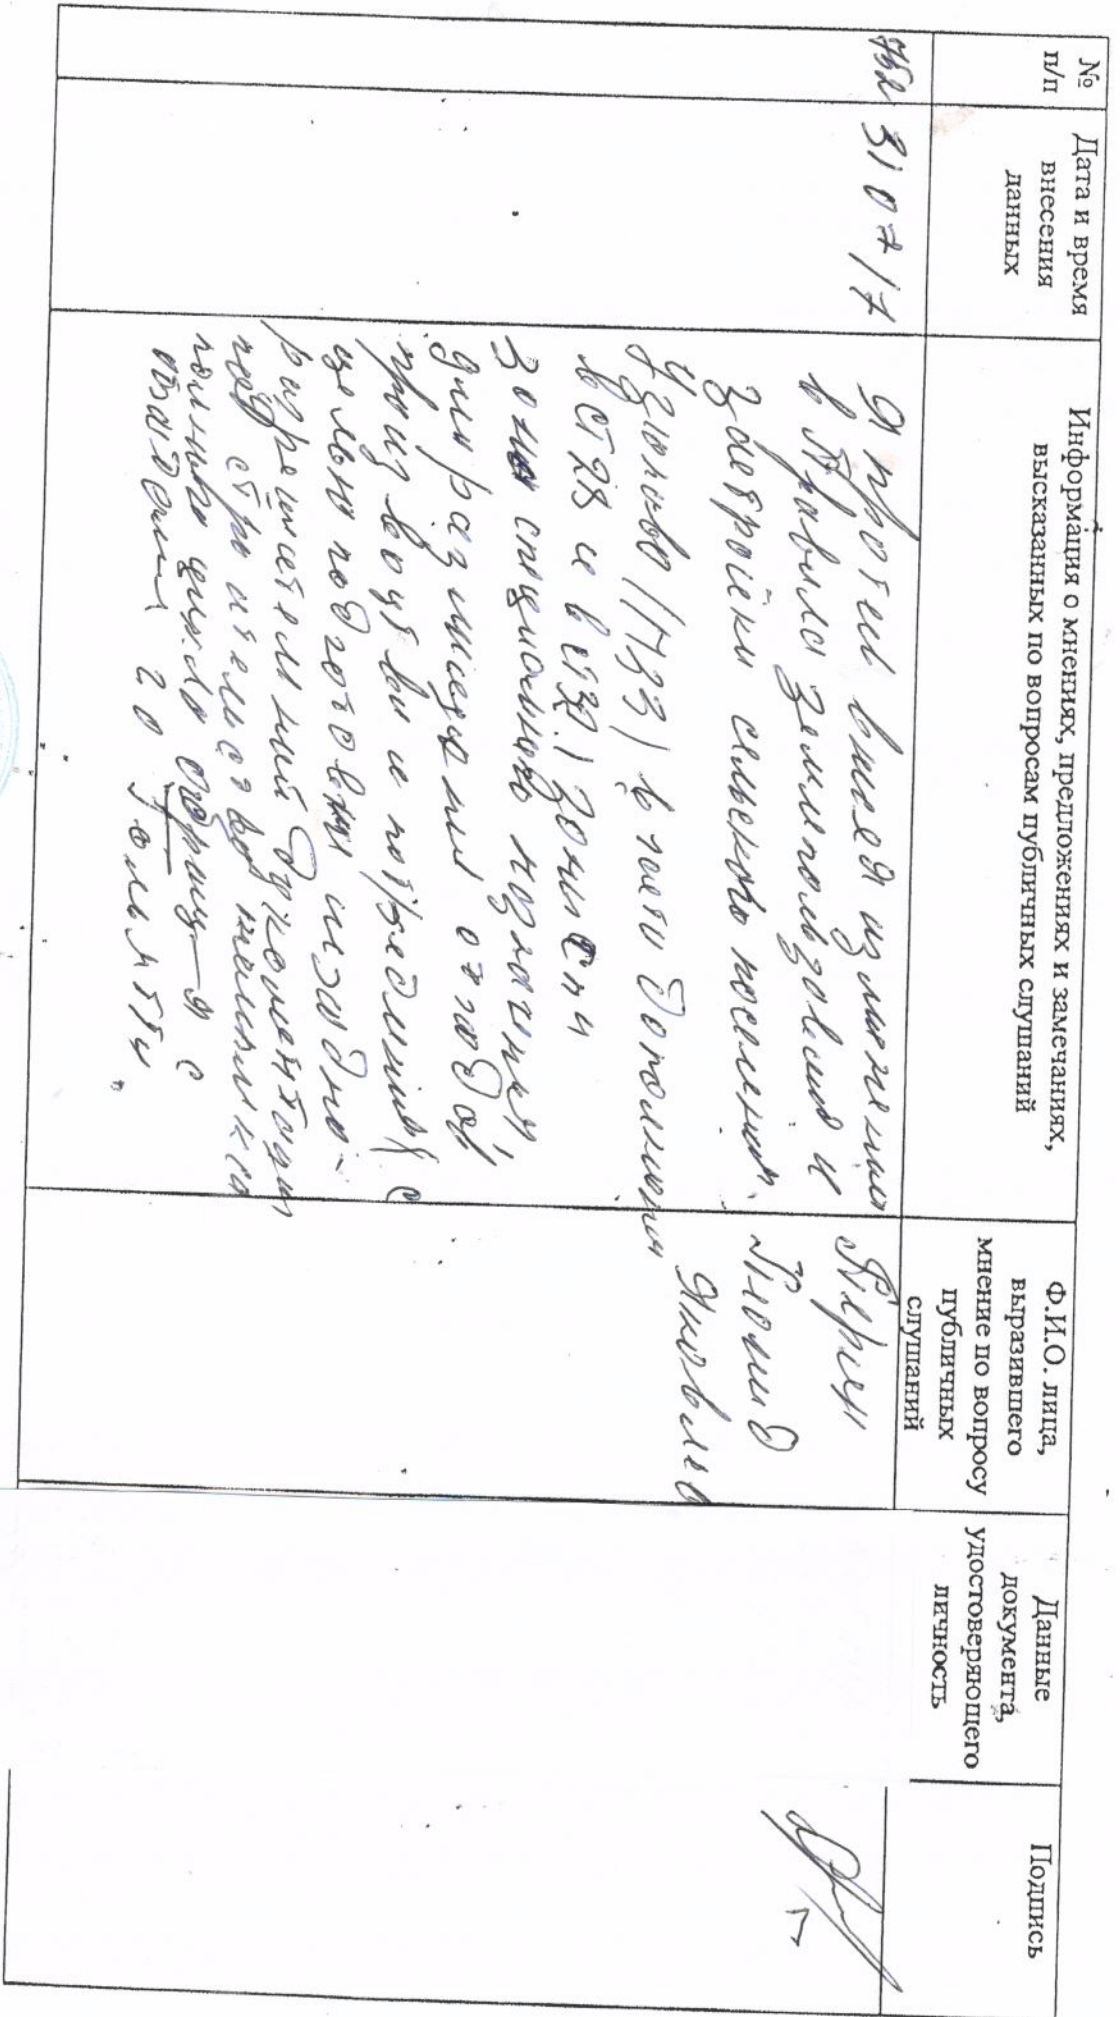 №
п/п
Дата и время
внесения
данных
Информация о мнениях, предложениях и замечаниях,
высказанных по вопросам публичных слушаний
Ф.И.О. лица,
выразившего
мнение по вопросу
публичных
слушаний
Данные
документа,
удостоверяющего
личность
Подпись
752
31 07 17
Я против внесения изменений
в Правила землепользования и
застройки сельского поселения
Узюково (ПЗЗ) в части дополнения
в ст 28 и в ст 30.1 зоны Сп4
зоны специального назначения,
для размещения отходов
производства и потребления с
целью подготовки исходно-
разрешительной документации
под строительство комплекса
полного цикла обращ-я с
отходами г о Тольятти
Леонид
Яковлев